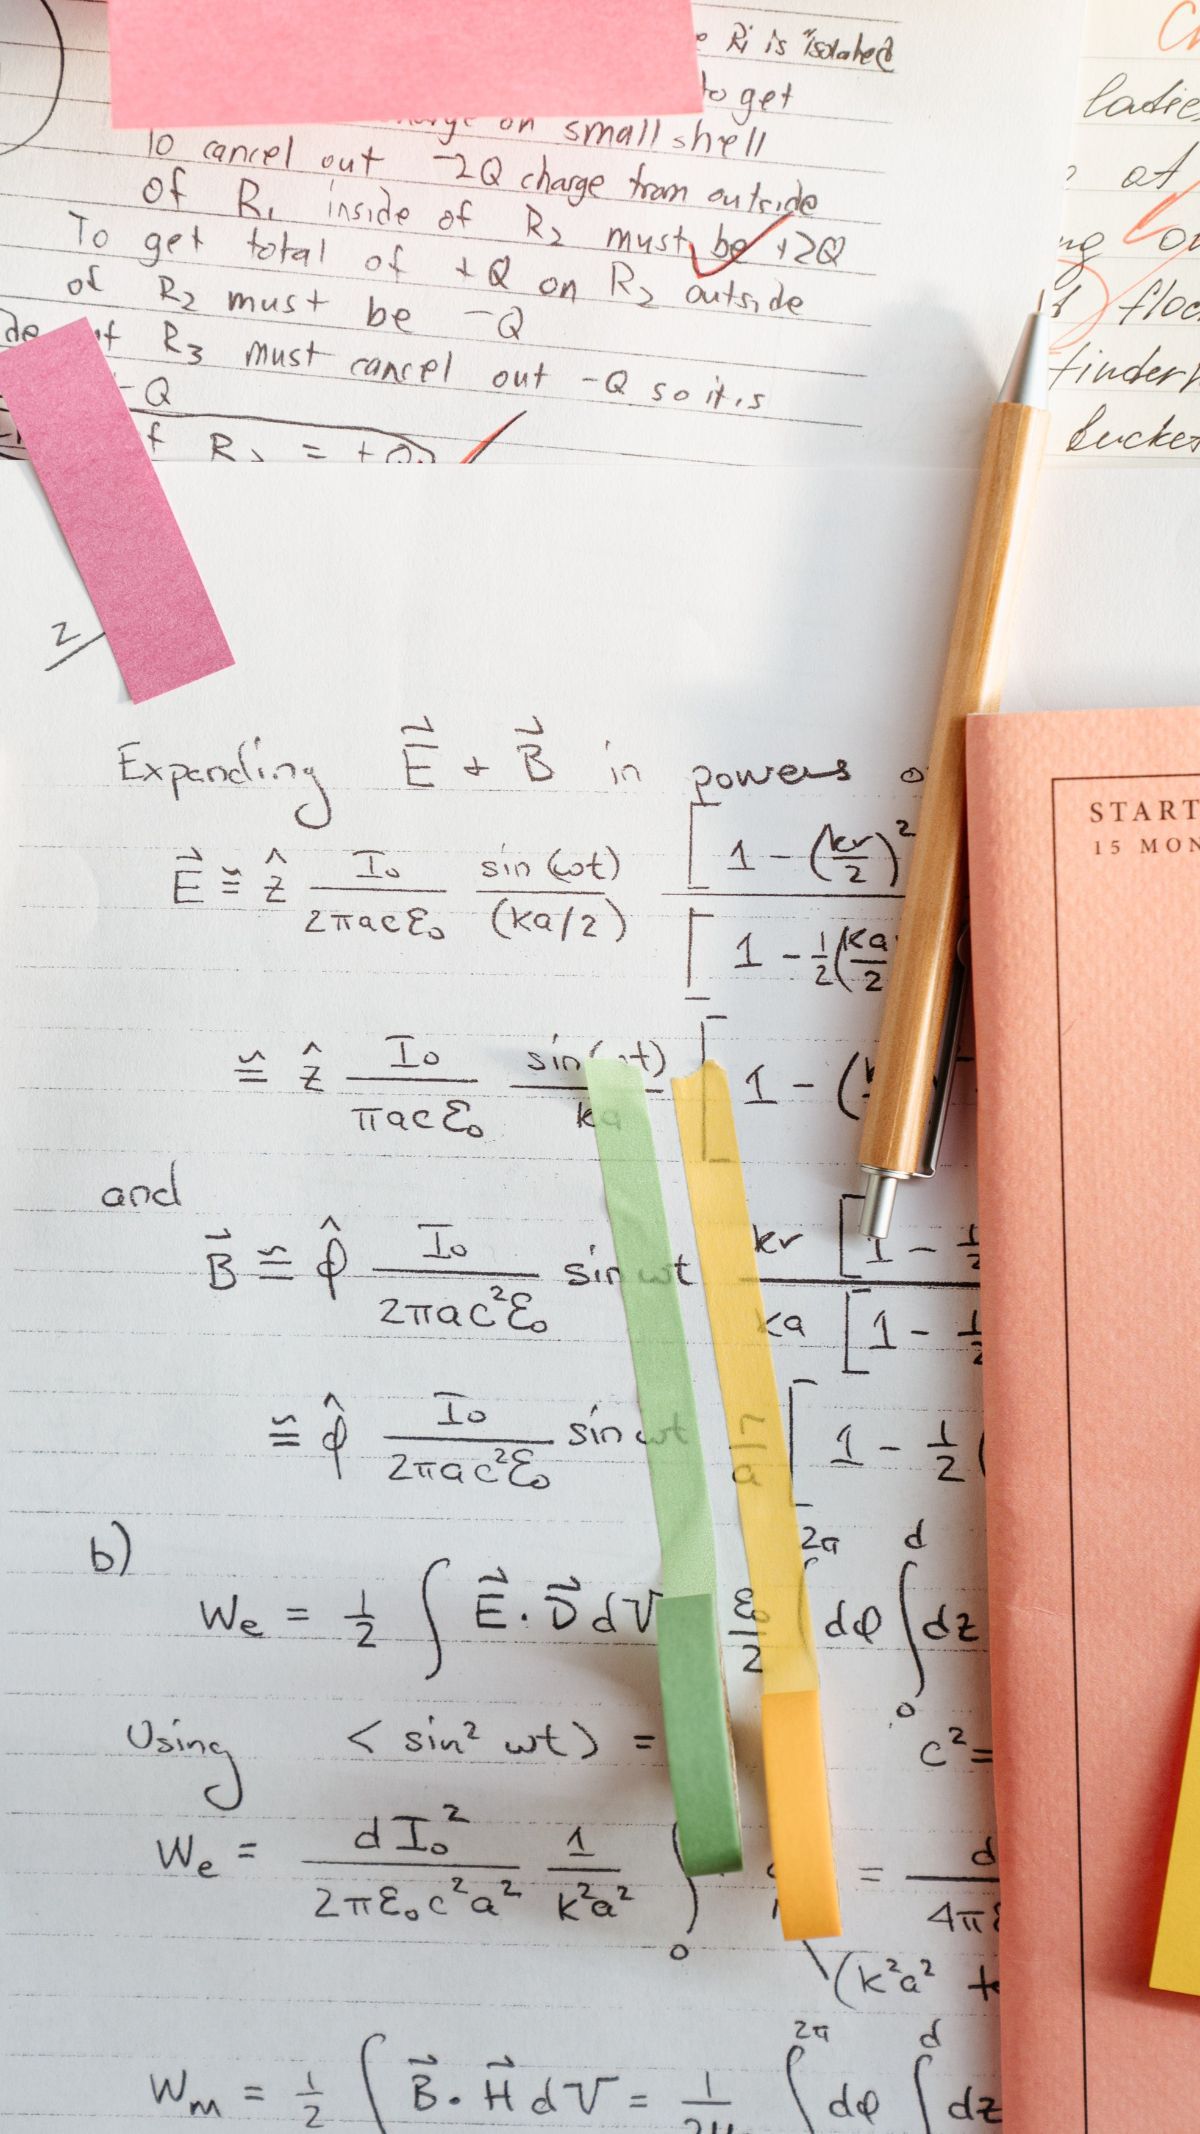 Ri is "isolated
to get
on small shell
To cancel out -2Q charge from outside
of R₁ inside of R₂ must be +2Q
To get total of +Q on R₂ outside
of R₂ must be -Q
R₃ must cancel out -Q so it is
-Q
R₃ = +Q
ladie
at
ou
floc
finder
bucke
2
Expanding E⃗ + B⃗ in powers
E⃗ ≅ ẑ I₀/(2πacε₀) sin(ωt)/(ka/2) [1 - (kr/2)² / [1 - 1/2(ka/2
≅ ẑ I₀/(πacε₀) sin(ωt)/ka [1 - (
and
B⃗ ≅ φ̂ I₀/(2πac²ε₀) sin ωt kr [1 - 1/2 / ka [1 - 1/2
≅ φ̂ I₀/(2πac²ε₀) sin ωt r/a [1 - 1/2 (
b)
We = 1/2 ∫ E⃗·D⃗ dV ε₀/2 ∫ 2π dφ ∫₀ᵈ dz
Using <sin² ωt> = c² =
We = dI₀²/(2πε₀c²a²) 1/(k²a²) ∫₀ = d/4π
(k²a²
Wm = 1/2 ∫ B⃗·H⃗ dV = 1/2μ ∫ 2π dφ ∫ d dz
START
15 MON